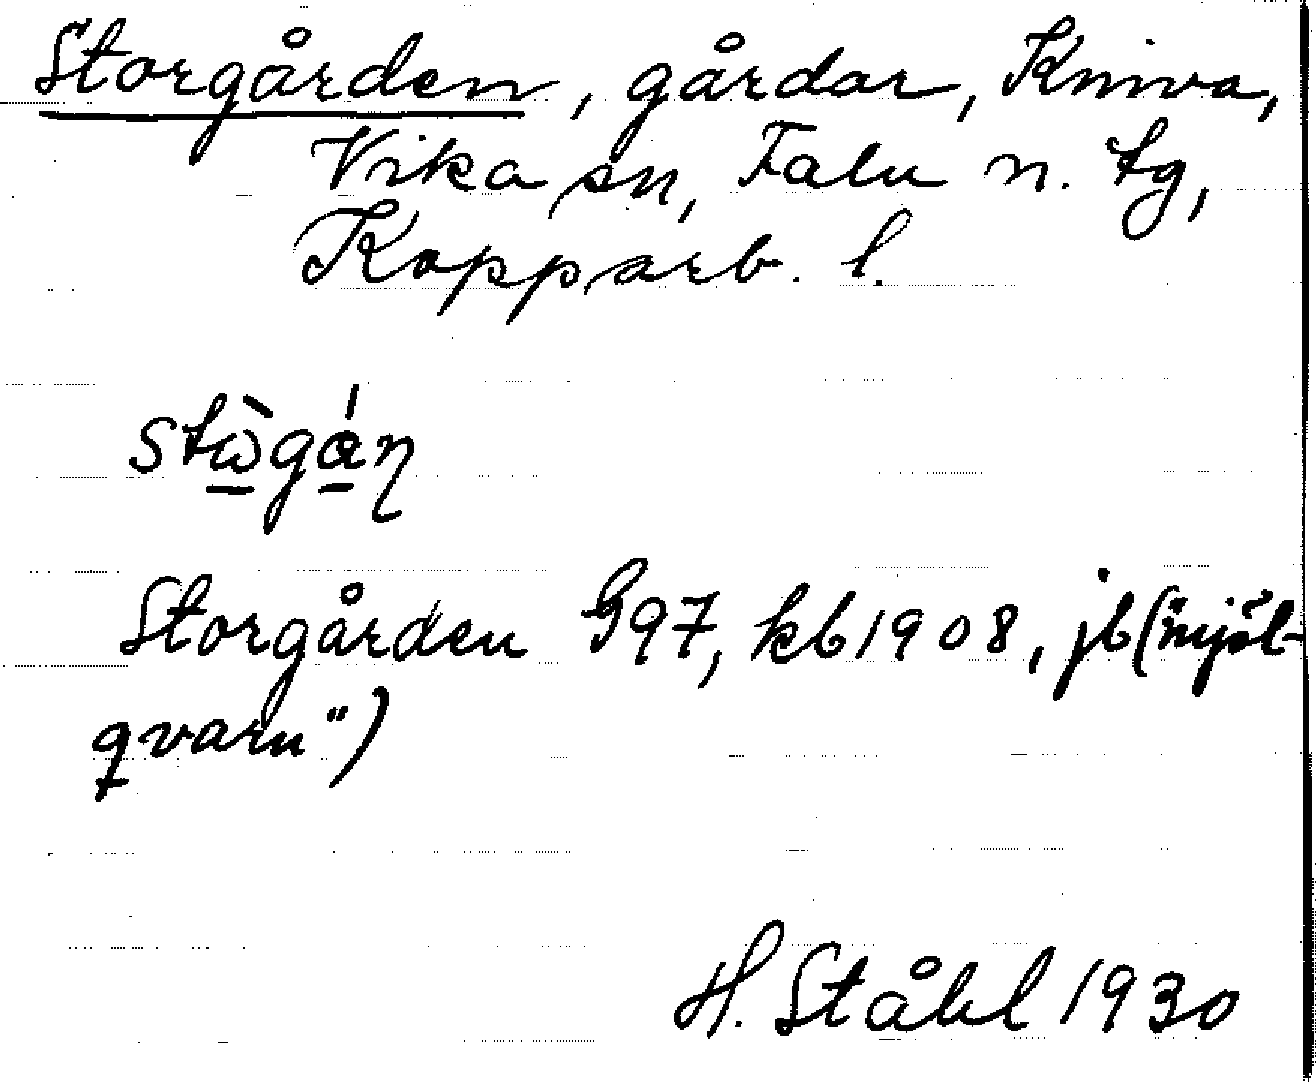 Storgården, gårdar, Kniva,
Vika sn, Falu n. tg,
Kopparb. l.
stὼ̲gá̲ɳ
Storgården G97, kb1908, jb("mjöl-
qvarn")
H. Ståhl 1930